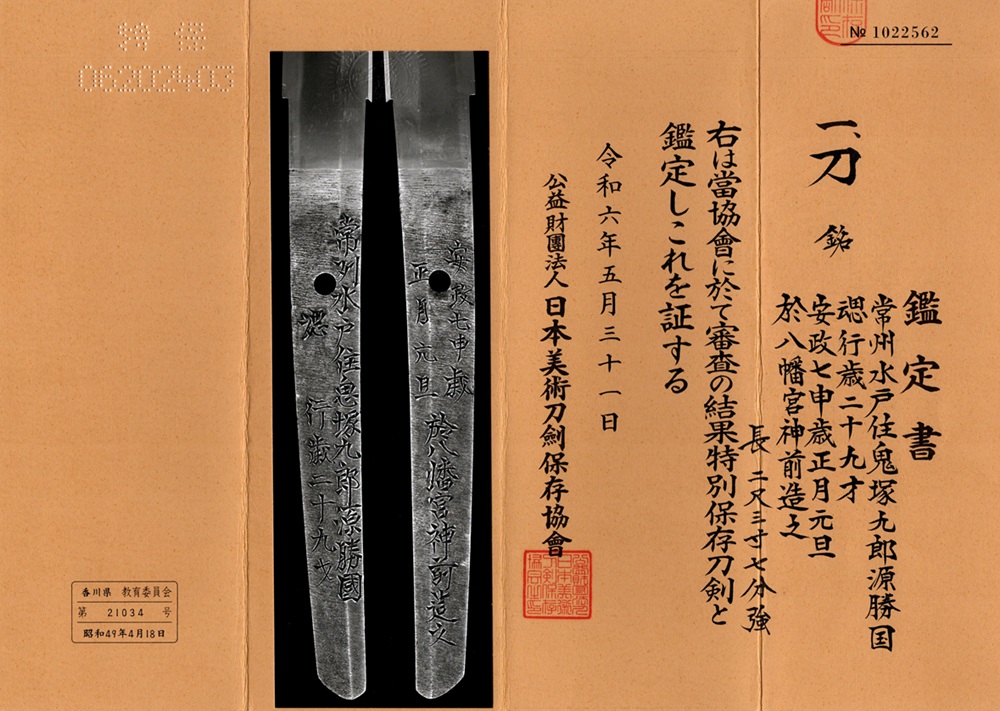 № 1022562
鑑定書
一、刀 銘
常州水戸住鬼塚九郎源勝国
偲行歳二十九才
安政七申歳正月元旦
於八幡宮神前造之
長二尺三寸七分強
右は當協會に於て審査の結果特別保存刀剣と
鑑定しこれを証する
令和六年五月三十一日
公益財團法人日本美術刀劍保存協會
安政七申歳
正月元旦
於八幡宮神前造之
常州水戸住鬼塚九郎源勝國
偲行歳二十九才
特保
06202403
香川県 教育委員会
第 21034 号
昭和49年4月18日